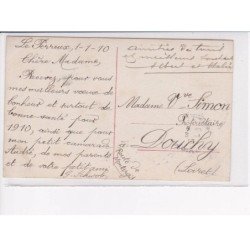 Le Perreux, 1-1-10
Chère Madame,
Recevez pour vous
mes meilleurs voeux de
bonheur et surtout de
bonne santé pour
1910, ainsi que pour
mon petit camarade
André, de mes parents
et de votre petit ami
amitiés de
et meilleure
Madame Vve Simon
Propriétaire
Douchy
(Loiret)
Route de